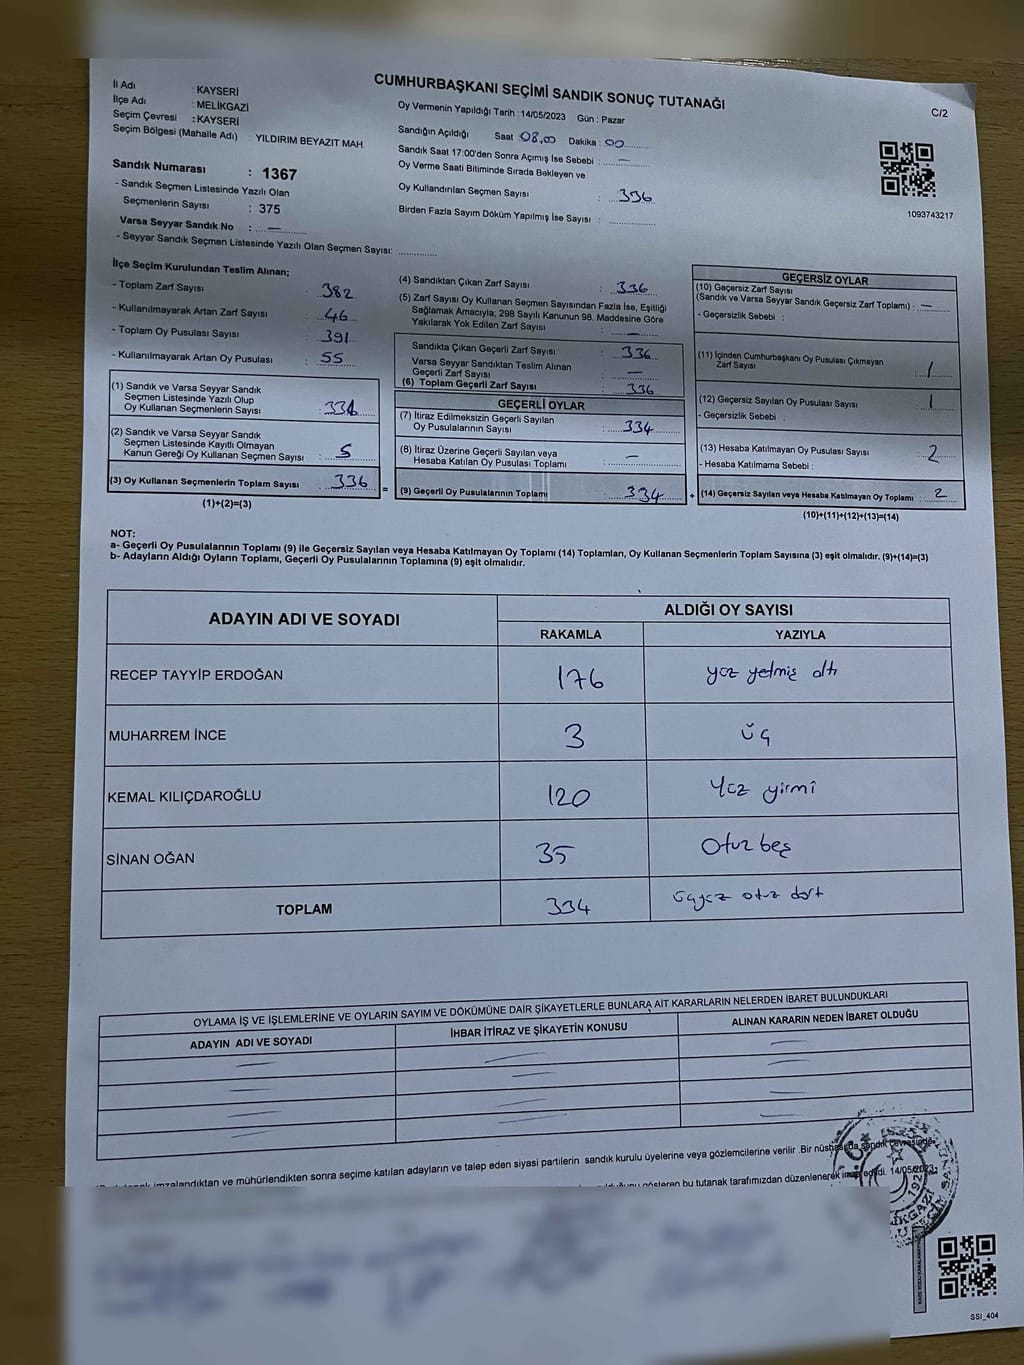 CUMHURBAŞKANI SEÇİMİ SANDIK SONUÇ TUTANAĞI
C/2
İl Adı : KAYSERİ
İlçe Adı : MELİKGAZİ
Seçim Çevresi : KAYSERİ
Seçim Bölgesi (Mahalle Adı) : YILDIRIM BEYAZIT MAH.
Sandık Numarası : 1367
- Sandık Seçmen Listesinde Yazılı Olan
Seçmenlerin Sayısı : 375
Varsa Seyyar Sandık No : —
- Seyyar Sandık Seçmen Listesinde Yazılı Olan Seçmen Sayısı:
Oy Vermenin Yapıldığı Tarih : 14/05/2023 Gün : Pazar
Sandığın Açıldığı Saat : 08,00 Dakika : 00
Sandık Saat 17:00'den Sonra Açımış İse Sebebi : —
Oy Verme Saati Bitiminde Sırada Bekleyen ve
Oy Kullandırılan Seçmen Sayısı : 336
Birden Fazla Sayım Döküm Yapılmış İse Sayısı :
1093743217
İlçe Seçim Kurulundan Teslim Alınan;
- Toplam Zarf Sayısı : 382
- Kullanılmayarak Artan Zarf Sayısı : 46
- Toplam Oy Pusulası Sayısı : 391
- Kullanılmayarak Artan Oy Pusulası : 55
(1) Sandık ve Varsa Seyyar Sandık
Seçmen Listesinde Yazılı Olup
Oy Kullanan Seçmenlerin Sayısı :
(2) Sandık ve Varsa Seyyar Sandık
Seçmen Listesinde Kayıtlı Olmayan
Kanun Gereği Oy Kullanan Seçmen Sayısı : 5
(3) Oy Kullanan Seçmenlerin Toplam Sayısı : 336
(1)+(2)=(3)
(4) Sandıktan Çıkan Zarf Sayısı : 336
(5) Zarf Sayısı Oy Kullanan Seçmen Sayısından Fazla İse, Eşitliği
Sağlamak Amacıyla; 298 Sayılı Kanunun 98. Maddesine Göre
Yakılarak Yok Edilen Zarf Sayısı : —
Sandıkta Çıkan Geçerli Zarf Sayısı : 336
Varsa Seyyar Sandıktan Teslim Alınan
Geçerli Zarf Sayısı : —
(6) Toplam Geçerli Zarf Sayısı : 336
GEÇERLİ OYLAR
(7) İtiraz Edilmeksizin Geçerli Sayılan
Oy Pusulalarının Sayısı : 334
(8) İtiraz Üzerine Geçerli Sayılan veya
Hesaba Katılan Oy Pusulası Toplamı : —
= (9) Geçerli Oy Pusulalarının Toplamı : 334
GEÇERSİZ OYLAR
(10) Geçersiz Zarf Sayısı
(Sandık ve Varsa Seyyar Sandık Geçersiz Zarf Toplamı) : —
- Geçersizlik Sebebi :
(11) İçinden Cumhurbaşkanı Oy Pusulası Çıkmayan
Zarf Sayısı : 1
(12) Geçersiz Sayılan Oy Pusulası Sayısı : 1
- Geçersizlik Sebebi :
(13) Hesaba Katılmayan Oy Pusulası Sayısı : 2
- Hesaba Katılmama Sebebi :
+ (14) Geçersiz Sayılan veya Hesaba Katılmayan Oy Toplamı : 2
(10)+(11)+(12)+(13)=(14)
NOT:
a- Geçerli Oy Pusulalarının Toplamı (9) ile Geçersiz Sayılan veya Hesaba Katılmayan Oy Toplamı (14) Toplamları, Oy Kullanan Seçmenlerin Toplam Sayısına (3) eşit olmalıdır. (9)+(14)=(3)
b- Adayların Aldığı Oyların Toplamı, Geçerli Oy Pusulalarının Toplamına (9) eşit olmalıdır.
ADAYIN ADI VE SOYADI
ALDIĞI OY SAYISI
RAKAMLA YAZIYLA
RECEP TAYYİP ERDOĞAN 176 yüz yetmiş altı
MUHARREM İNCE 3 üç
KEMAL KILIÇDAROĞLU 120 Yüz yirmi
SİNAN OĞAN 35 Otuz beş
TOPLAM 334 üçyüz otuz dört
OYLAMA İŞ VE İŞLEMLERİNE VE OYLARIN SAYIM VE DÖKÜMÜNE DAİR ŞİKAYETLERLE BUNLARA AİT KARARLARIN NELERDEN İBARET BULUNDUKLARI
ADAYIN ADI VE SOYADI İHBAR İTİRAZ VE ŞİKAYETİN KONUSU ALINAN KARARIN NEDEN İBARET OLDUĞU
imzalandıktan ve mühürlendikten sonra seçime katılan adayların ve talep eden siyasi partilerin sandık kurulu üyelerine veya gözlemcilerine verilir .Bir nüshası da sandık çevresinde
gösteren bu tutanak tarafımızdan düzenlenerek imza edildi. 14/05/2023
SSI_404